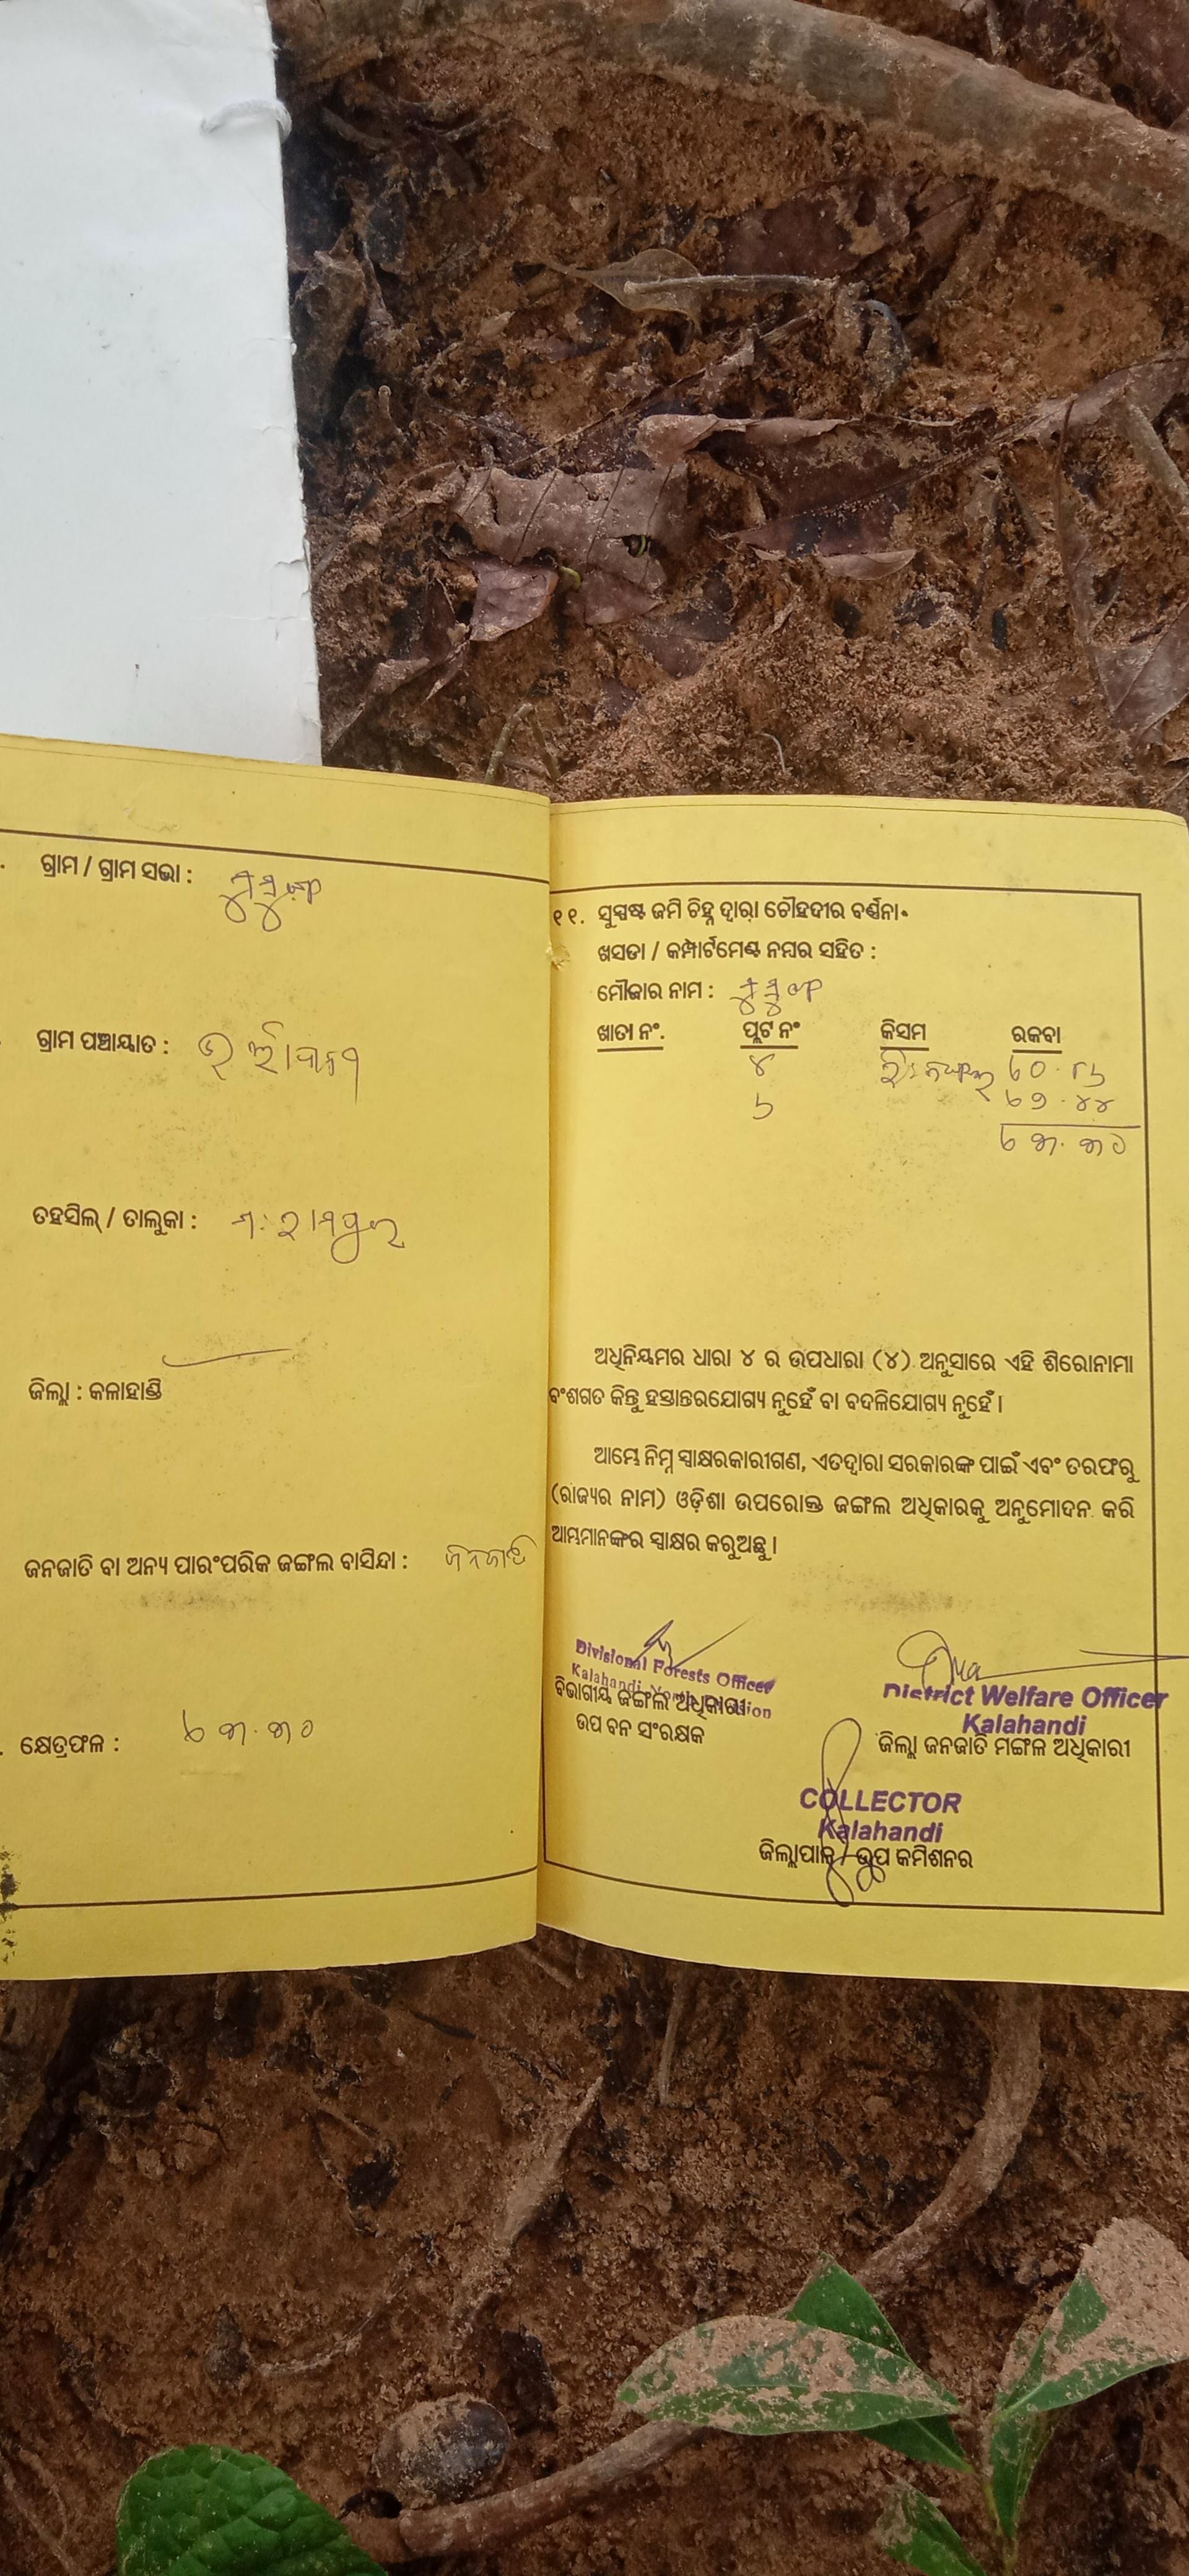 ଗ୍ରାମ / ଗ୍ରାମ ସଭା :
ଗ୍ରାମ ପଞ୍ଚାୟାତ :
ତହସିଲ୍ / ତାଲୁକା : ମ: ରାମପୁର
ଜିଲ୍ଲା : କଳାହାଣ୍ଡି
ଜନଜାତି ବା ଅନ୍ୟ ପାରଂପରିକ ଜଙ୍ଗଲ ବାସିନ୍ଦା : ଜନଜାତି
କ୍ଷେତ୍ରଫଳ :
୧୧. ସୁସ୍ପଷ୍ଟ ଜମି ଚିହ୍ନ ଦ୍ୱାରା ଚୌହଦୀର ବର୍ଣ୍ଣନା.
ଖସଡା / କମ୍ପାର୍ଟମେଣ୍ଟ ନମ୍ବର ସହିତ :
ମୌଜାର ନାମ :
ଖାତା ନଂ. ପ୍ଲଟ ନଂ କିସମ ରକବା
୪
ଅଧିନିୟମର ଧାରା ୪ ର ଉପଧାରା (୪) ଅନୁସାରେ ଏହି ଶିରୋନାମା
ବଂଶଗତ କିନ୍ତୁ ହସ୍ତାନ୍ତରଯୋଗ୍ୟ ନୁହେଁ ବା ବଦଳିଯୋଗ୍ୟ ନୁହେଁ ।
ଆମ୍ଭେ ନିମ୍ନ ସ୍ୱାକ୍ଷରକାରୀଗଣ, ଏତଦ୍ୱାରା ସରକାରଙ୍କ ପାଇଁ ଏବଂ ତରଫରୁ
(ରାଜ୍ୟର ନାମ) ଓଡ଼ିଶା ଉପରୋକ୍ତ ଜଙ୍ଗଲ ଅଧିକାରକୁ ଅନୁମୋଦନ କରି
ଆମ୍ଭମାନଙ୍କର ସ୍ୱାକ୍ଷର କରୁଅଛୁ ।
Divisional Forests Officer
Kalahandi Division
ବିଭାଗୀୟ ଜଙ୍ଗଲ ଅଧିକାରୀ
ଉପ ବନ ସଂରକ୍ଷକ
District Welfare Officer
Kalahandi
ଜିଲ୍ଲା ଜନଜାତି ମଙ୍ଗଳ ଅଧିକାରୀ
COLLECTOR
Kalahandi
ଜିଲ୍ଲାପାଳ / ଉପ କମିଶନର